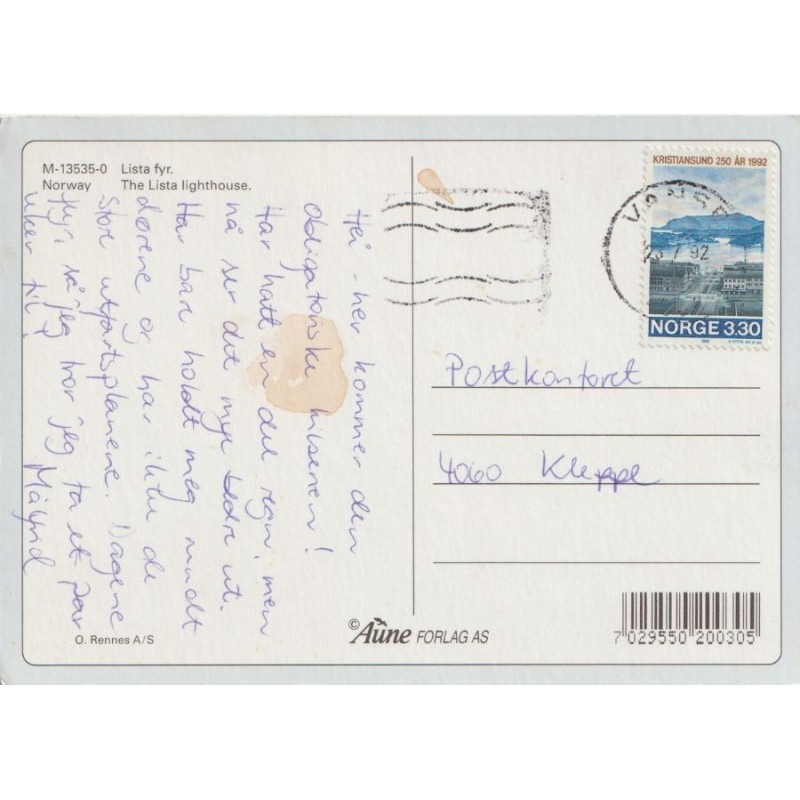 M-13535-0 Lista fyr.
Norway The Lista lighthouse.
Hei - her kommer den
obligatoriske hilsenen!
Har hatt en del regn, men
nå ser det mye bedre ut.
Har bare holdt meg rundt
dørene og har ikke de
store utfartsplanene. Dagene
flyr, så jeg tror jeg tar et par
uker til!
Målfrid
KRISTIANSUND 250 ÅR 1992
NORGE 3.30
92
Postkontoret
4060 Kleppe
O. Rennes A/S
© Aune FORLAG AS
7 029550 200305